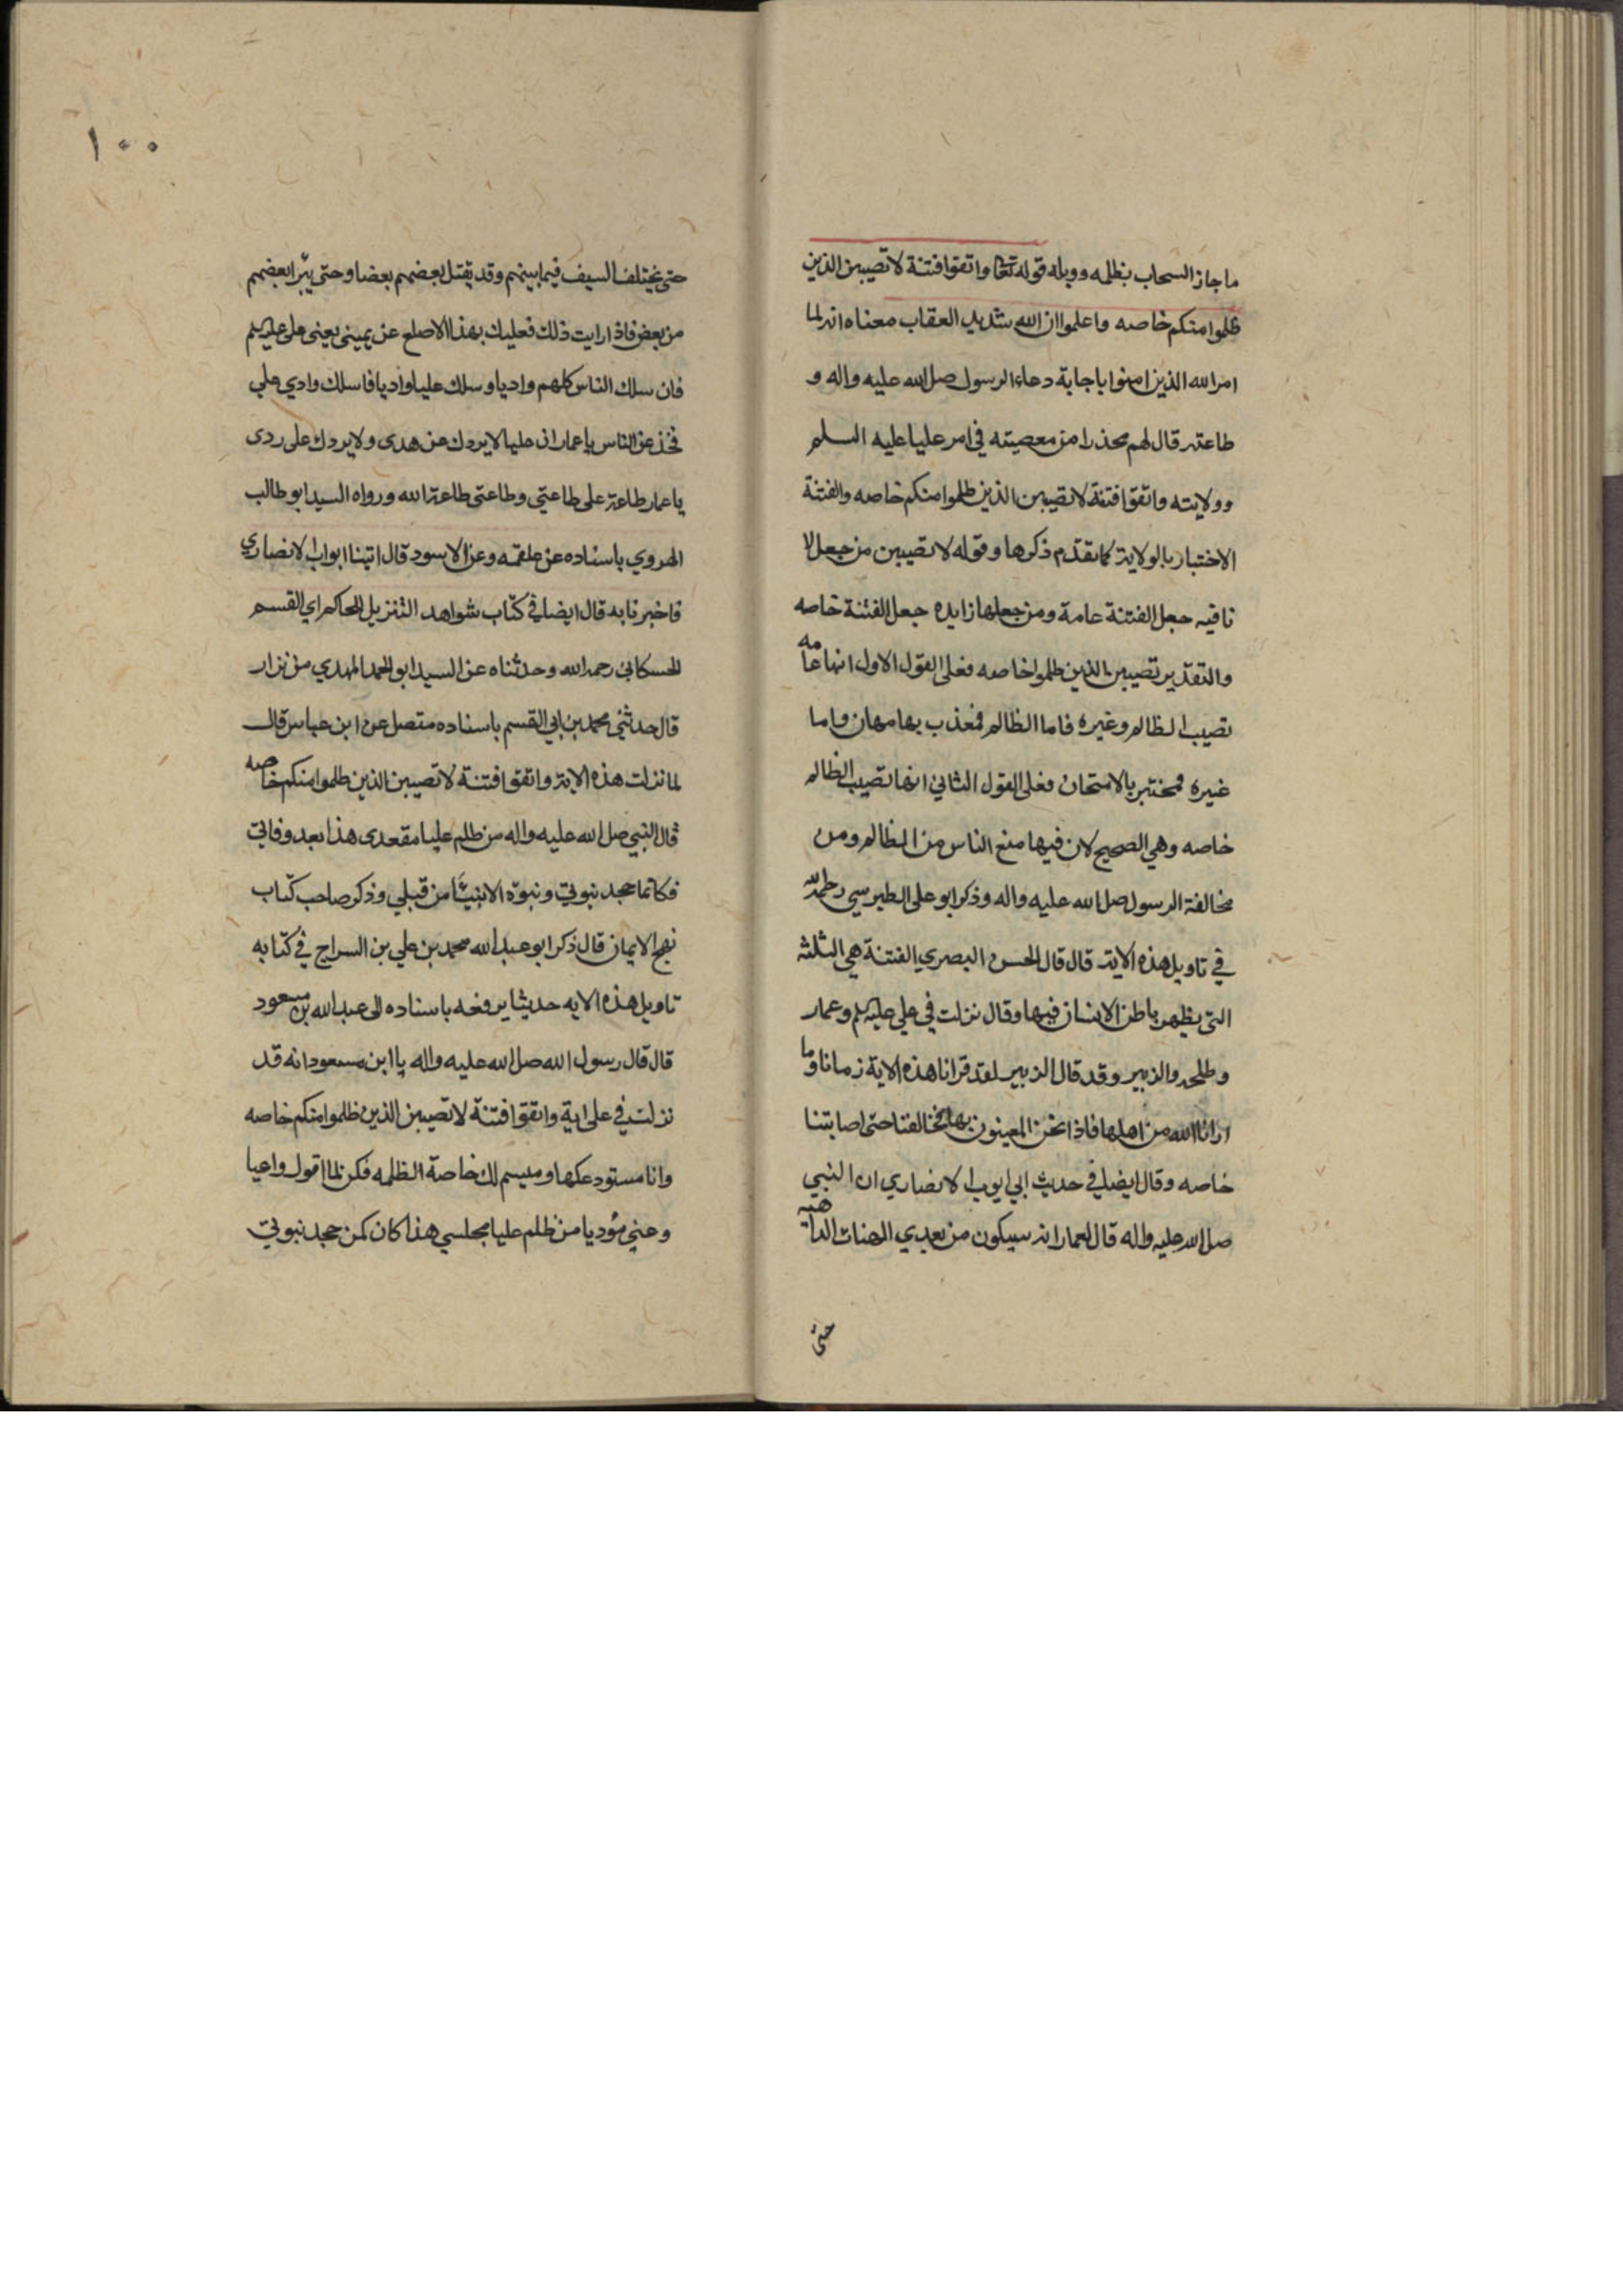 ما جاز السحاب بظله ووبله قوله تعا واتقوا فتنة لا تصيبن الذين
ظلموا منكم خاصه واعلموا ان الله شديد العقاب معناه انه لما
امر الله الذين امنوا باجابة دعاء الرسول صل الله عليه واله و
طاعته قال لهم محذرا من معصيته في امر عليا عليه السلم
وولايته واتقوا فتنة لا تصيبن الذين ظلموا منكم خاصه والفتنة
الاختبار بالولاية كما تقدم ذكرها وقوله لا تصيبن من جعل لا
نافيه جعل الفتنة عامة ومن جعلها زايده جعل الفتنة خاصه
والتقدير تصيبن الذين ظلموا خاصه فعلى القول الاول انها عامه
تصيب الظالم وغيره فاما الظالم فمعذب بها مهان واما
غيره فمختبر بالامتحان وفعلى القول الثاني انها تصيب الظالم
خاصه وهي الصحيح لان فيها منع الناس من الظالم ومن
مخالفة الرسول صل الله عليه واله وذكر ابو على الطبرسي رحمه الله
في تاويل هذه الاية قال قال الحسن البصري الفتنة هي الثلثه
التى يظهر باطن الانسان فيها وقال نزلت في علي عليه لم وعمار
وطلحه والزبير وقد قال الزبير لقد قرانا هذه الاية زمانا وما
ارانا الله من اهلها فاذا نحن المعينون بها فخالفنا حتى اصابتنا
خاصه وقال ايضا في حديث ابي ايوب الانصاري ان النبي
صل الله عليه واله قال لعمار انه سيكون من بعدي الهنات الداهيه
حتى
١٠٠
حتى يختلف السيف فيما بينهم وقد يقتل بعضهم بعضا وحتى يتبرا بعضهم
من بعض فاذا رايت ذلك فعليك بهذا الاصلع عن يمينى يعنى على عليه لم
فان سلك الناس كلهم واديا وسلك عليا واديا فاسلك وادي علي
فخذ عن الناس يا عمار ان عليا لا يردك عن هدى ولا يردك على ردى
يا عمار طاعة على طاعتي وطاعتى طاعة الله ورواه السيد ابو طالب
الهروي باسناده عن علقمه وعن الاسود قال اتينا ابواب الانصاري
فاخبرنا به قال ايضا في كتاب شواهد التنزيل للحاكم اي القسم
الحسكاني رحمه الله وحدثناه عن السيد ابو الحمد المهدي من نزار
قال حدثني محمد بن ابي القسم باسناده متصل عن ابن عباس قال
لما نزلت هذه الاية واتقوا فتنة لا تصيبن الذين ظلموا منكم خاصه
قال النبي صل الله عليه واله من ظلم عليا مقعدى هذا بعد وفاتي
فكانما جحد نبوتي ونبوة الانبيا من قبلي وذكر صاحب كتاب
نهج الايمان قال ذكر ابو عبد الله محمد بن علي بن السراج في كتابه
تاويل هذه الايه حديثا يرفعه باسناده الى عبد الله بن مسعود
قال قال رسول الله صل الله عليه واله يا ابن مسعود انه قد
نزلت في على اية واتقوا فتنة لا تصيبن الذين ظلموا منكم خاصه
وانا مستودعكها ومسيم لك خاصة الظلمه فكن لما اقول واعيا
وعني مؤديا من ظلم عليا مجلسي هذا كان كمن جحد نبوتي